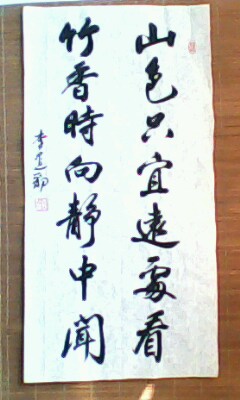 山色只宜遠處看
竹香時向靜中聞